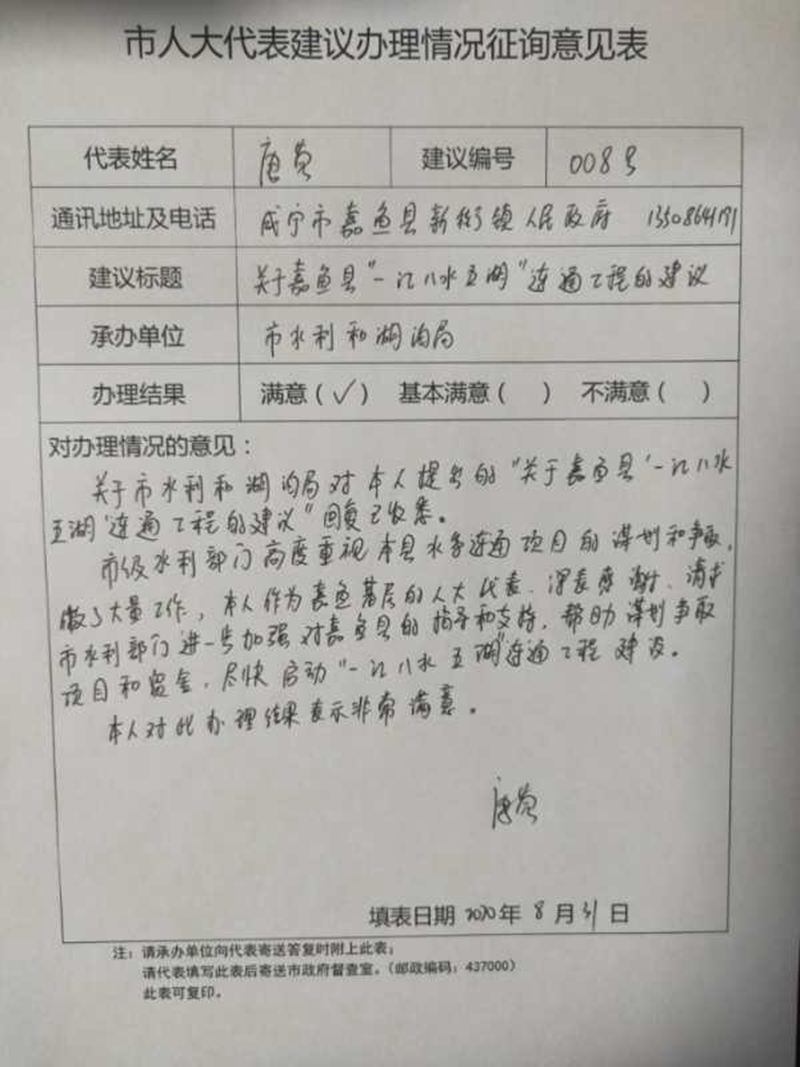 市人大代表建议办理情况征询意见表
代表姓名 唐 建议编号 008号
通讯地址及电话 咸宁市嘉鱼县新街镇人民政府
建议标题 关于嘉鱼县“一江八水五湖”连通工程的建议
承办单位 市水利和湖泊局
办理结果 满意(✓) 基本满意( ) 不满意( )
对办理情况的意见:
关于市水利和湖泊局对本人提出的“关于嘉鱼县‘一江八水
五湖’连通工程的建议”回复已收悉。
市级水利部门高度重视本县水系连通项目的谋划和争取,
做了大量工作,本人作为嘉鱼基层的人大代表,深表感谢,请求
市水利部门进一步加强对嘉鱼县的指导和支持,帮助谋划争取
项目和资金,尽快启动“一江八水五湖”连通工程建设。
本人对此办理结果表示非常满意。
唐
填表日期 2020年 8月31日
注:请承办单位向代表寄送答复时附上此表;
请代表填写此表后寄送市政府督查室。(邮政编码:437000)
此表可复印。